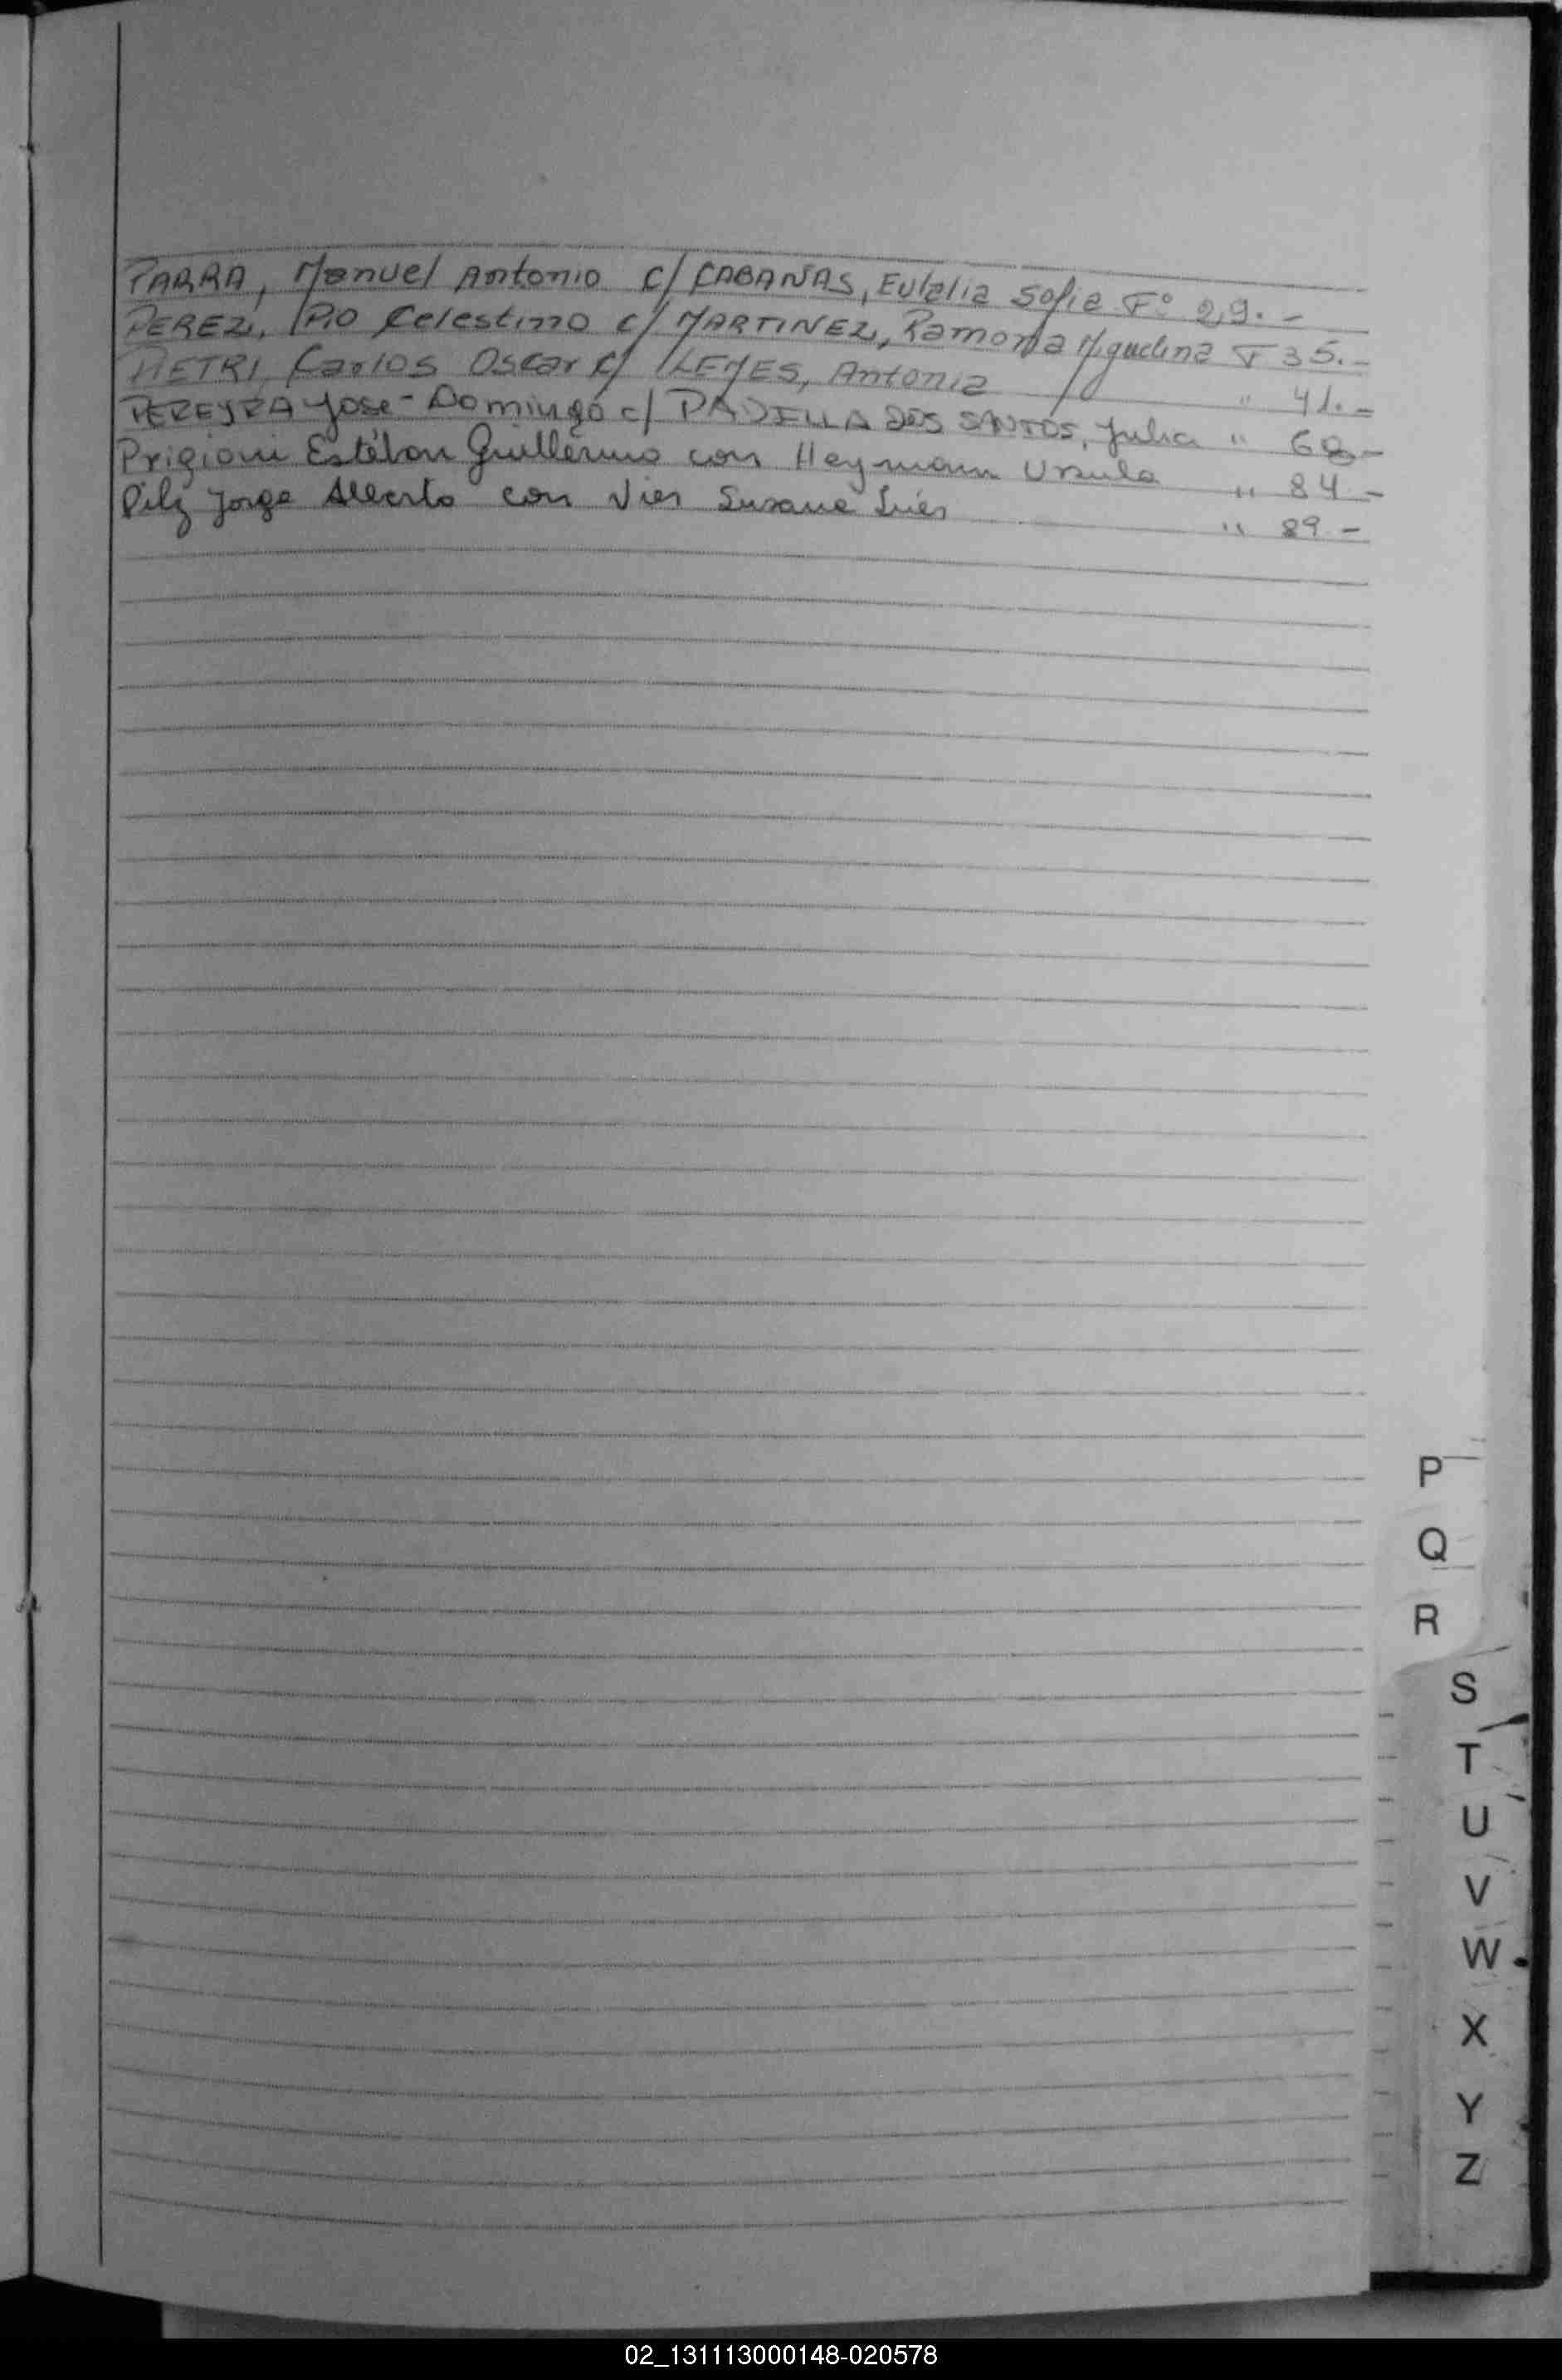 PARRA, Manuel Antonio c/ CABAÑAS, Eulalia Sofia Fº 29.-
PEREZ, Pio Celestino c/ MARTINEZ, Ramona Miguelina F 35.-
PIETRI, Carlos Oscar c/ LEYES, Antonia " 41.-
PEREYRA Jose-Domingo c/ PADILLA DOS SANTOS, Julia " 68-
Prigioni Estéban Guillermo con Heymann Ursula " 84.-
Pilz Jorge Alberto con Vier Susana Inés " 89.-
P
Q
R
S
T
U
V
W
X
Y
Z
02_131113000148-020578